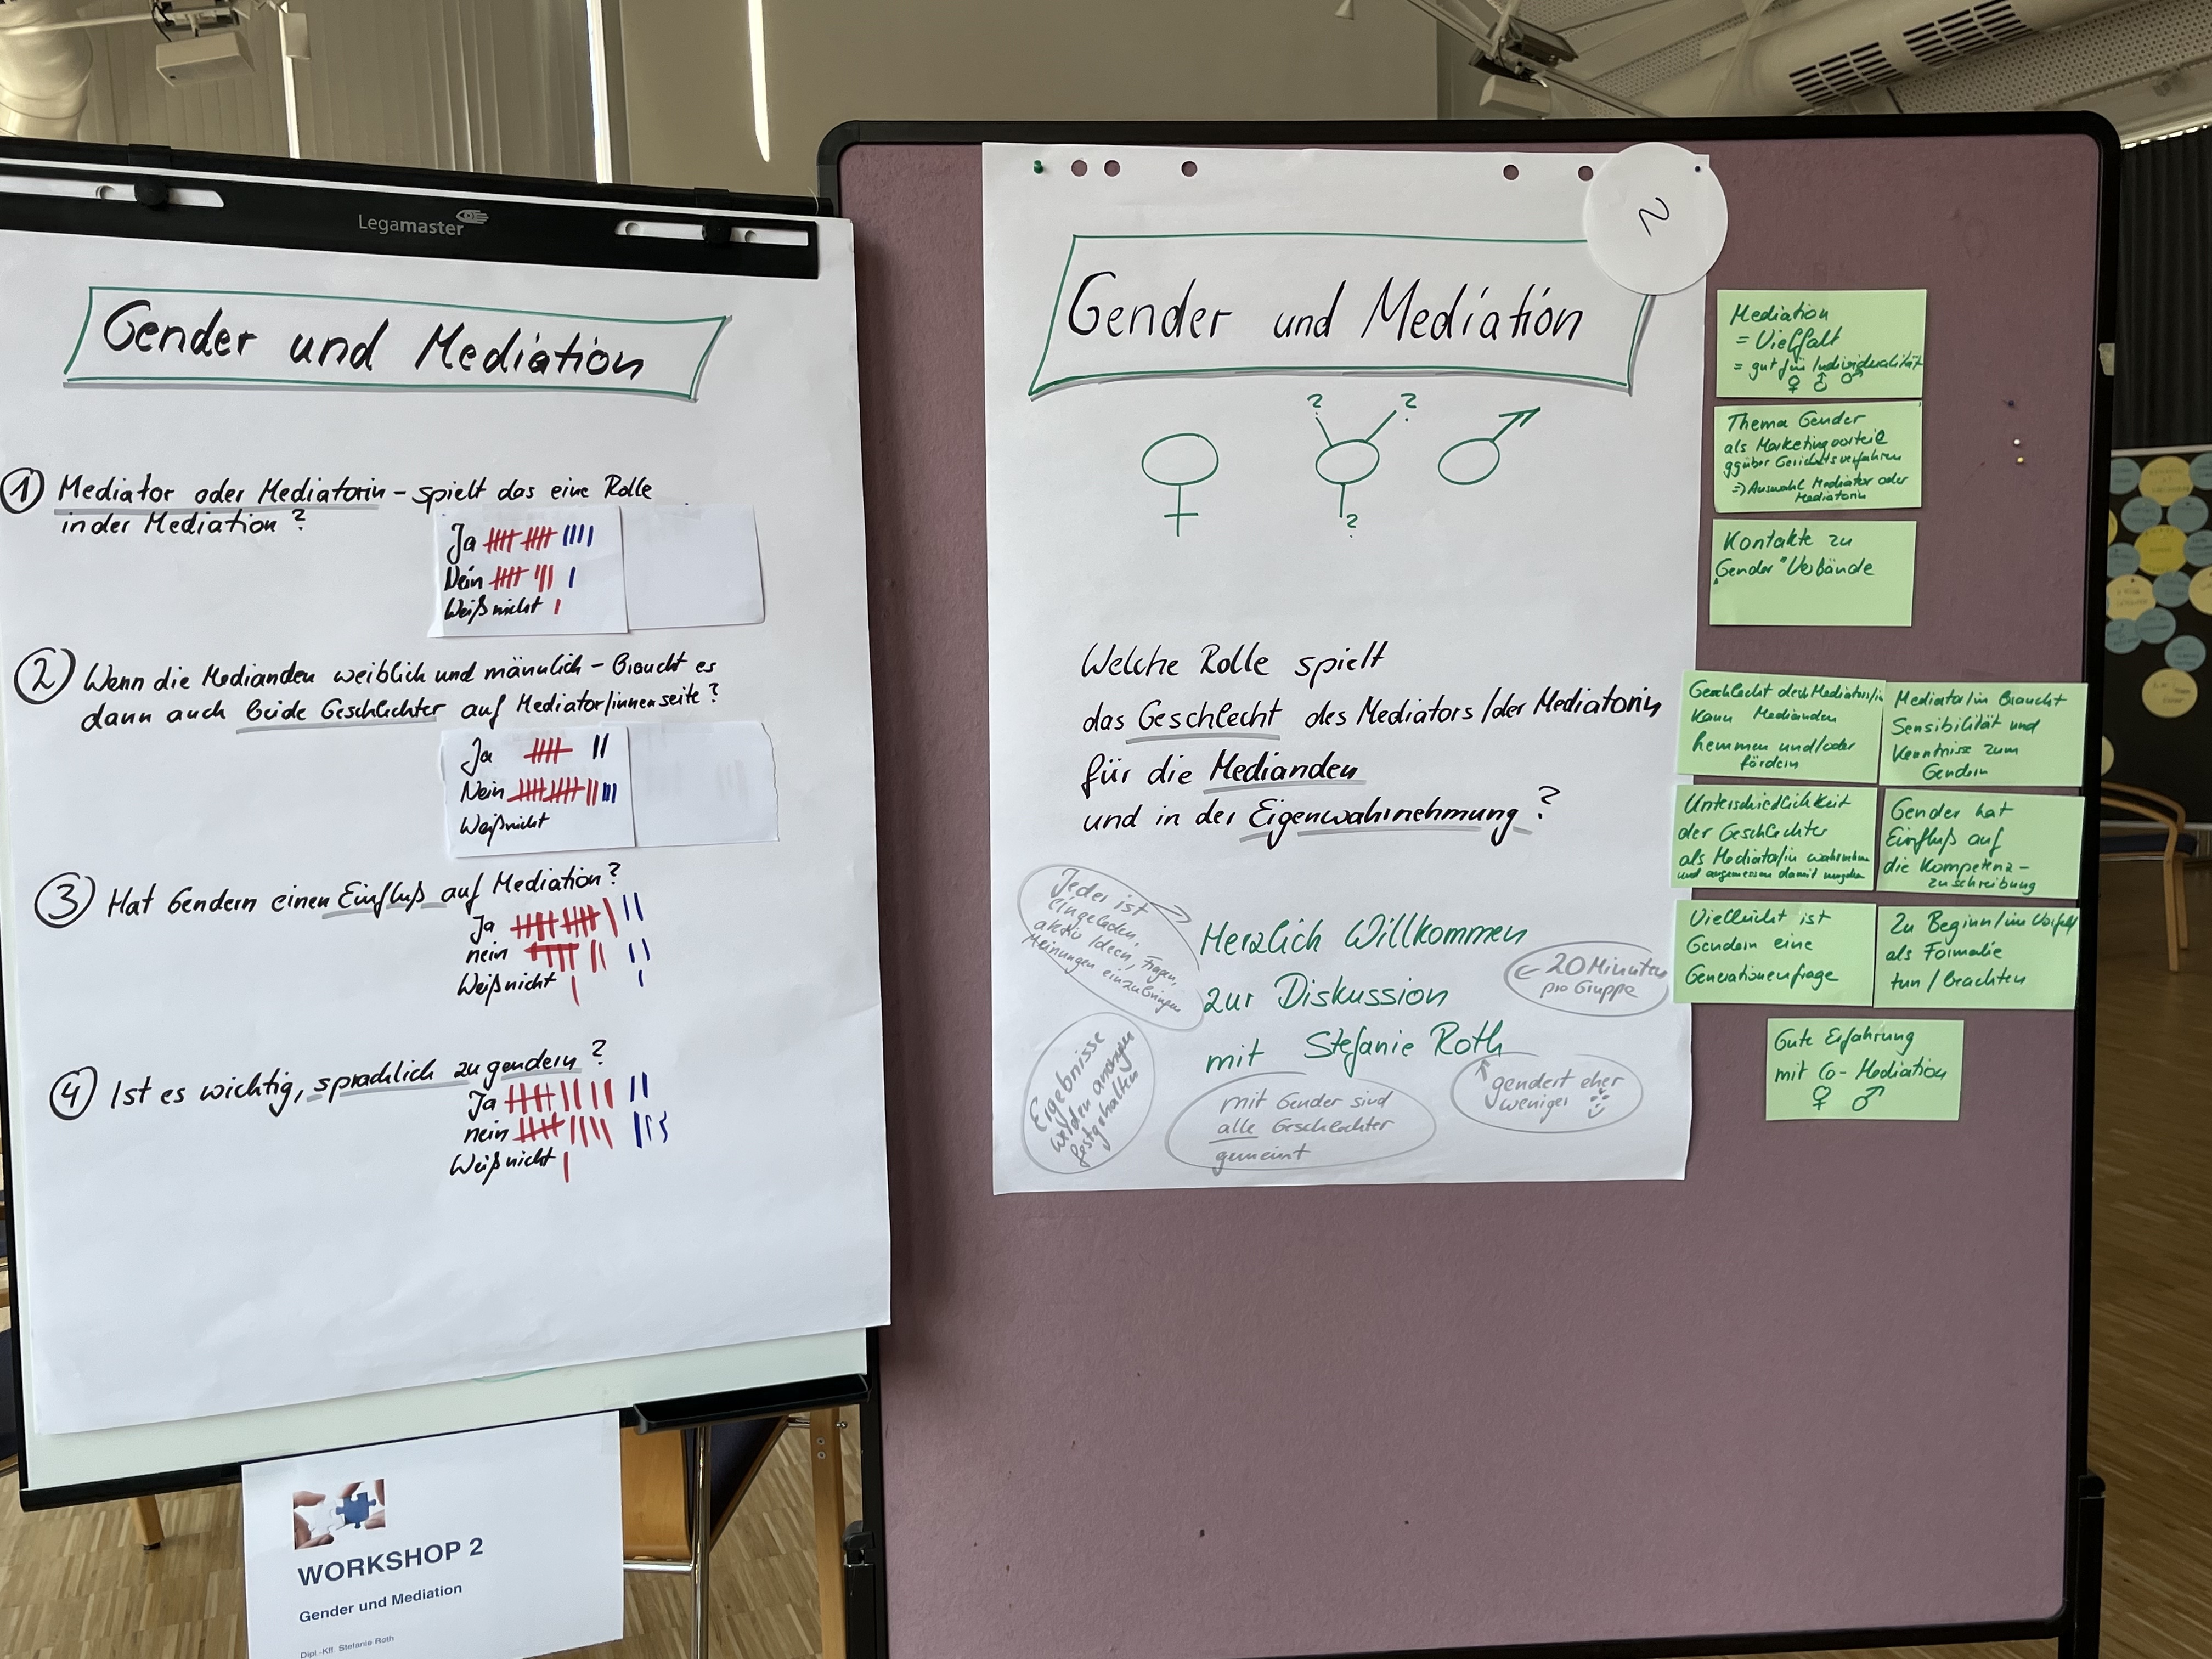 Legamaster
Gender und Mediation
1 Mediator oder Mediatorin – spielt das eine Rolle
in der Mediation?
Ja
Nein
Weiß nicht
2 Wenn die Medianden weiblich und männlich – Braucht es
dann auch beide Geschlechter auf Mediator/innenseite?
Ja
Nein
Weiß nicht
3 Hat Gendern einen Einfluß auf Mediation?
Ja
nein
Weiß nicht
4 Ist es wichtig, sprachlich zu gendern?
Ja
nein
Weiß nicht
WORKSHOP 2
Gender und Mediation
Dipl.-Kff. Stefanie Roth
2
Gender und Mediation
? ?
?
Welche Rolle spielt
das Geschlecht des Mediators/der Mediatorin
für die Medianden
und in der Eigenwahrnehmung?
Jeder ist
eingeladen,
aktiv Ideen, Fragen,
Meinungen einzubringen
Herzlich Willkommen
zur Diskussion
mit Stefanie Roth
← 20 Minuten
pro Gruppe
Ergebnisse
werden anonym
festgehalten
mit Gender sind
alle Geschlechter
gemeint
gendert eher
weniger
Mediation
= Vielfalt
= gut für Individualität
♀ ♂
Thema Gender
als Marketingvorteil
ggüber Gerichtsverfahren
⇒ Auswahl Mediator oder
Mediatorin
Kontakte zu
"Gender" Verbände
Geschlecht des Mediators/in
kann Medianden
hemmen und/oder
fördern
Mediator/in Braucht
Sensibilität und
Kenntnisse zum
Gendern
Unterschiedlichkeit
der Geschlechter
als Mediator/in wahrnehmen
und angemessen damit umgehen
Gender hat
Einfluß auf
die Kompetenz-
zuschreibung
Vielleicht ist
Gendern eine
Generationenfrage
Zu Beginn/im Vorfeld
als Formalie
tun/beachten
Gute Erfahrung
mit Co-Mediation
♀ ♂